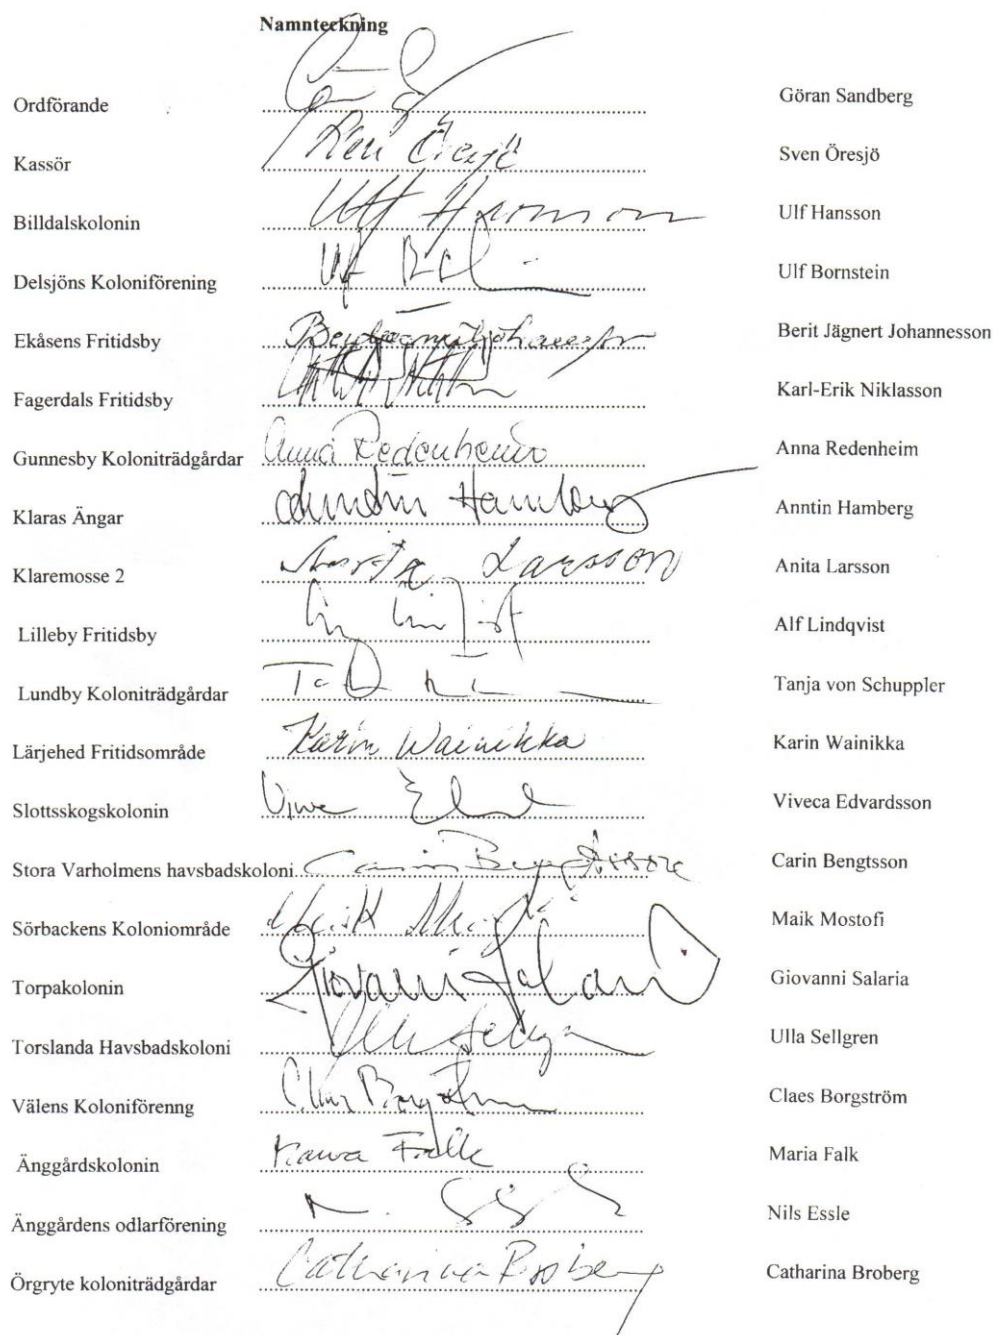 Namnteckning
Ordförande Göran Sandberg
Kassör Sven Öresjö Sven Öresjö
Billdalskolonin Ulf Hansson Ulf Hansson
Delsjöns Koloniförening Ulf Ulf Bornstein
Ekåsens Fritidsby Berit Jägnert Johannesson
Fagerdals Fritidsby Karl-Erik Niklasson
Gunnesby Koloniträdgårdar Anna Redenheim Anna Redenheim
Klaras Ängar Anntin Hamberg Anntin Hamberg
Klaremosse 2 Anita Larsson Anita Larsson
Lilleby Fritidsby Alf Lindqvist
Lundby Koloniträdgårdar Tanja von Schuppler
Lärjehed Fritidsområde Karin Wainikka Karin Wainikka
Slottsskogskolonin Viveca Edvardsson
Stora Varholmens havsbadskoloni Carin Bengtsson Carin Bengtsson
Sörbackens Koloniområde Maik Maik Mostofi
Torpakolonin Giovanni Salaria Giovanni Salaria
Torslanda Havsbadskoloni Ulla Sellgren Ulla Sellgren
Välens Koloniförenng Claes Borgström
Änggårdskolonin Maria Falk Maria Falk
Änggårdens odlarförening Nils Essle
Örgryte koloniträdgårdar Catharina Broberg Catharina Broberg